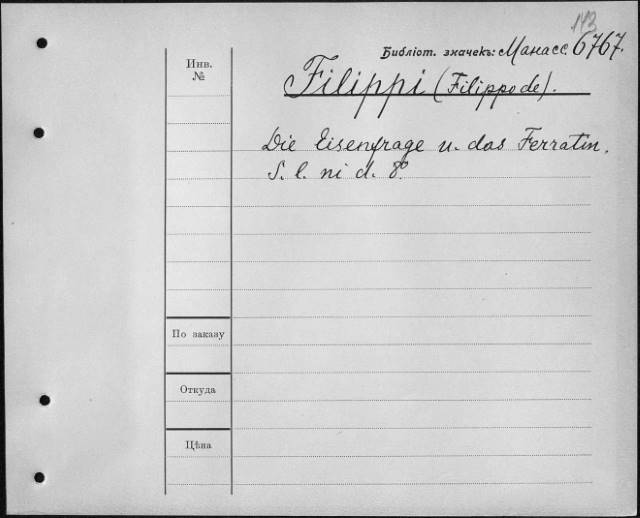 143
Библіот. значекъ: Манасс. 6767.
Инв.
№
Filippi (Filippo de).
Die Eisenfrage u. das Ferratin.
S. l. ni d. 8°
По заказу
Откуда
Цѣна